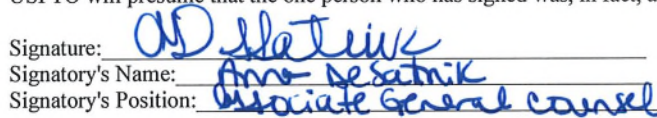 USPTO will presume that the one person who has signed was, in fact, a
Signature:
Signatory's Name: Anne DeSatnik
Signatory's Position: Associate General Counsel